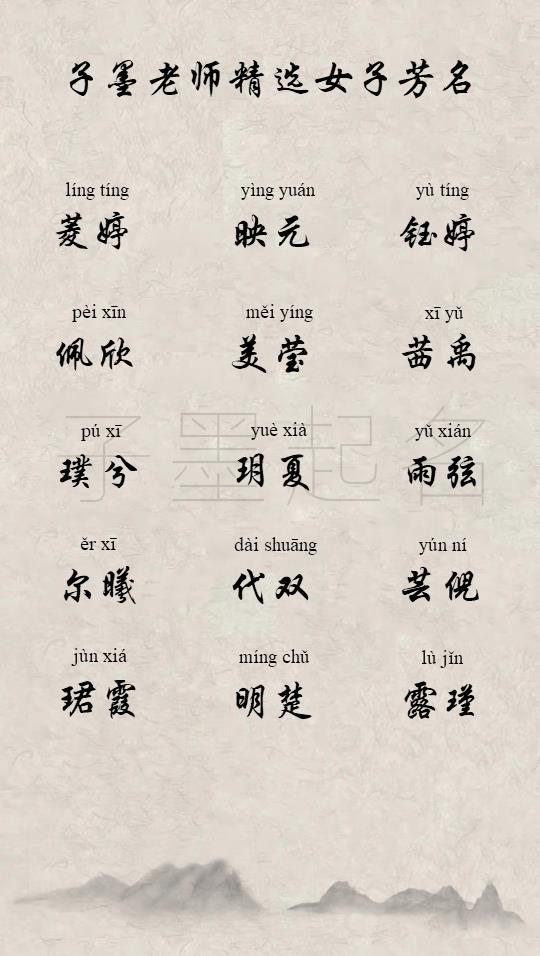 子墨老师精选女子芳名
líng tíng yìng yuán yù tíng
菱婷 映元 钰婷
pèi xīn měi yíng xī yǔ
佩欣 美莹 茜禹
pú xī yuè xià yǔ xián
璞兮 玥夏 雨弦
子墨起名
ěr xī dài shuāng yún ní
尔曦 代双 芸倪
jùn xiá míng chǔ lù jǐn
珺霞 明楚 露瑾